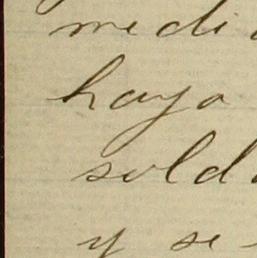 medi
haya
sold
y se